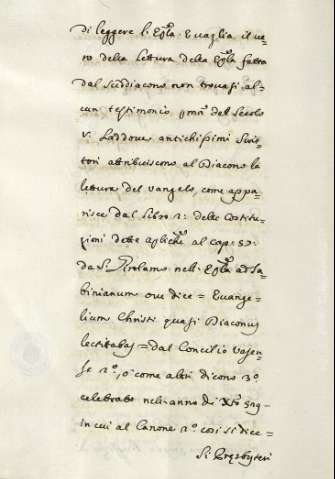 di leggere l'Epla. Evaglia il ve=
ro della lettura della Epla fatta
dal Suddiacono non trovasi al=
cun testimonio del Secolo
V. Laddove antichissimi Scrit=
tori attribuiscono al Diacono la
lettura del vangelo, come appa=
risce dal libro 2: delle Costitu=
zioni dette al cap: 57:
da S. Girolamo nell' Epla ad Sa=
binianum ove dice = Evange=
lium Christi quasi Diaconus
lectitabas = dal Concilio Vasen=
se 2°, o come altri dicono 3°
celebrato nell'anno di Xto 529
in cui al Canone 2° così si dice =
Si Presbyteri